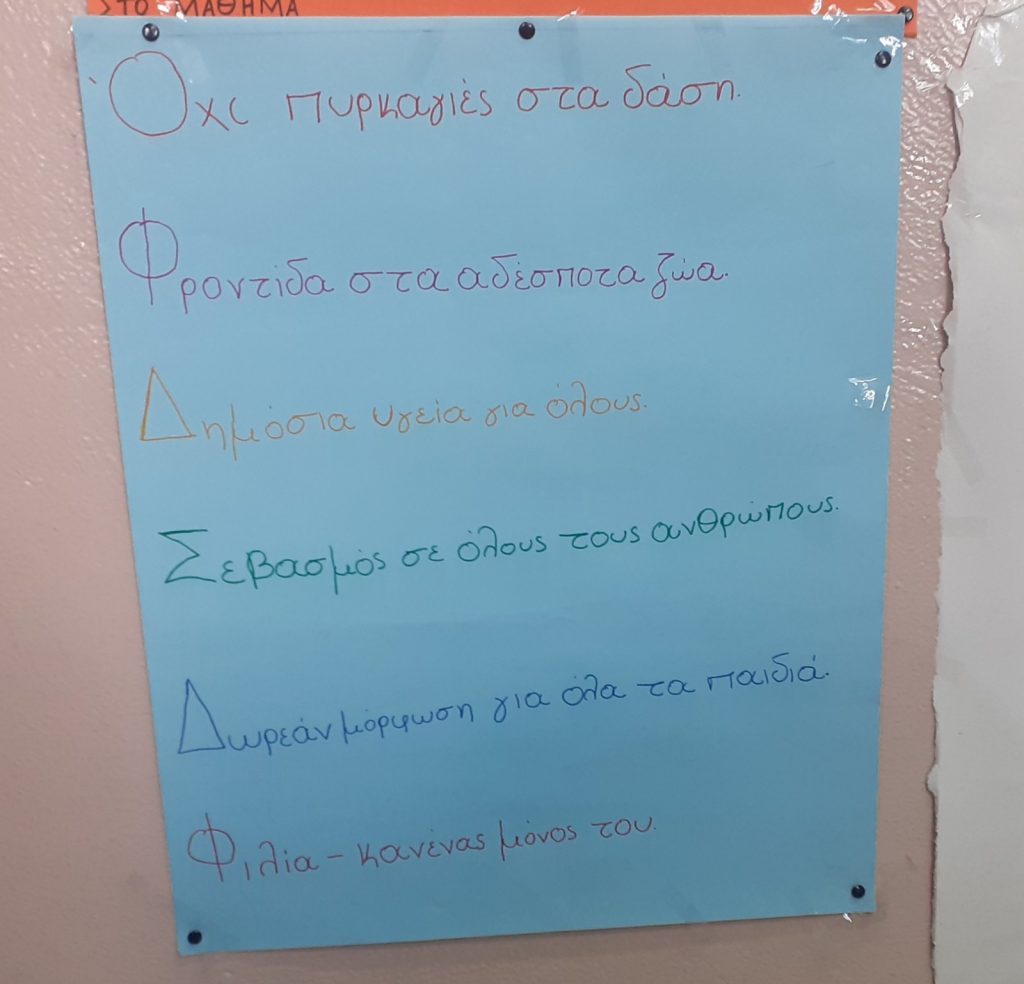 ΣΤΟ ΜΑΘΗΜΑ
Όχι πυρκαγιές στα δάση.
Φροντίδα στα αδέσποτα ζώα.
Δημόσια υγεία για όλους.
Σεβασμός σε όλους τους ανθρώπους.
Δωρεάν μόρφωση για όλα τα παιδιά.
Φιλία - κανένας μόνος του.